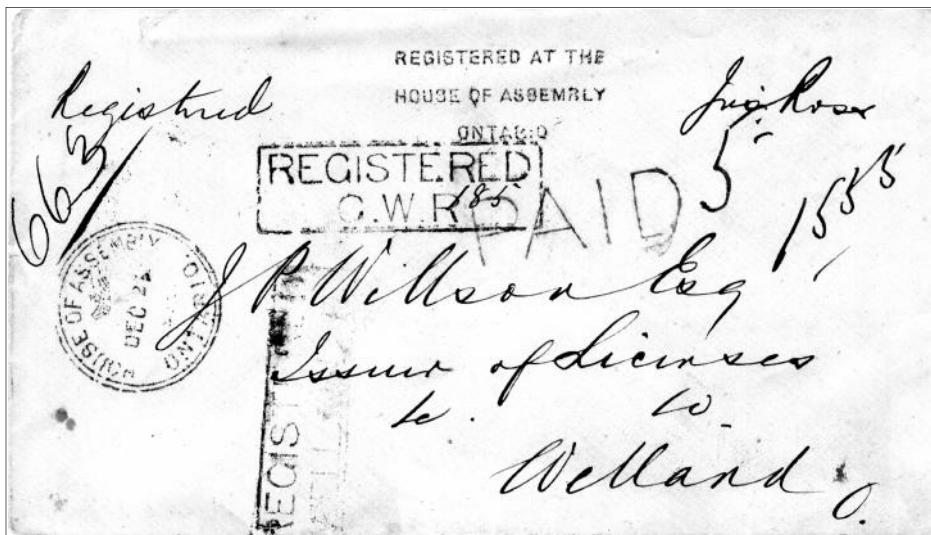 REGISTERED AT THE
HOUSE OF ASSEMBLY
ONTARIO
Registred
663
5
1555
REGISTERED
G.W.R
185
PAID
HOUSE OF ASSEMBLY ONTARIO
DEC 22
J P Willson Esq
Issuer of Licenses
&c. &c
Welland
O.
REGIS